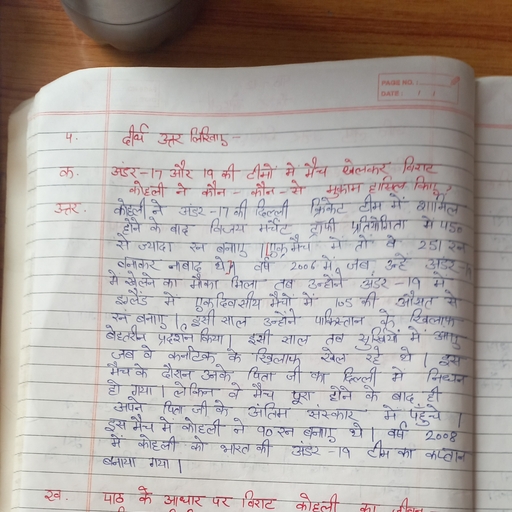 PAGE NO.:
DATE: / /
4. दीर्घ उत्तर लिखिए -
क. अंडर-17 और 19 की टीमों में मैच खेलकर विराट
कोहली ने कौन - कौन - से मुकाम हासिल किए?
उत्तर. कोहली ने अंडर-17 की दिल्ली क्रिकेट टीम में शामिल
होने के बाद विजय मर्चेंट ट्रॉफी प्रतियोगिता में
से ज्यादा रन बनाए। एक मैच में तो वे 251 रन
बनाकर नाबाद थे। वर्ष 2006 में जब उन्हें अंडर-
में खेलने का मौका मिला तब उन्होंने अंडर-19 में
इंग्लैंड में एकदिवसीय मैचों में 105 की औसत से
रन बनाए। इसी साल उन्होंने पाकिस्तान के खिलाफ
बेहतरीन प्रदर्शन किया। इसी साल तब सुर्खियों में आए
जब वे कर्नाटक के खिलाफ खेल रहे थे। इस
मैच के दौरान उनके पिता जी का दिल्ली में निधन
हो गया। लेकिन वे मैच पूरा होने के बाद ही
अपने पिता जी के अंतिम संस्कार में पहुंचे।
इस मैच में कोहली ने 90 रन बनाए थे। वर्ष 2008
में कोहली को भारत की अंडर-19 टीम का कप्तान
बनाया गया।
ख. पाठ के आधार पर विराट कोहली का जीवन -